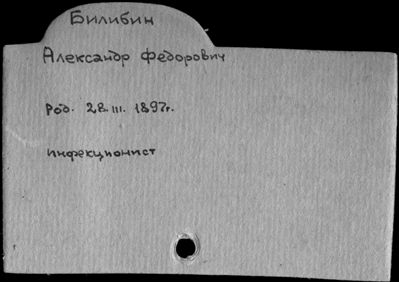 Билибин
Александр Федорович
Род. 28.III. 1897г.
инфекционист